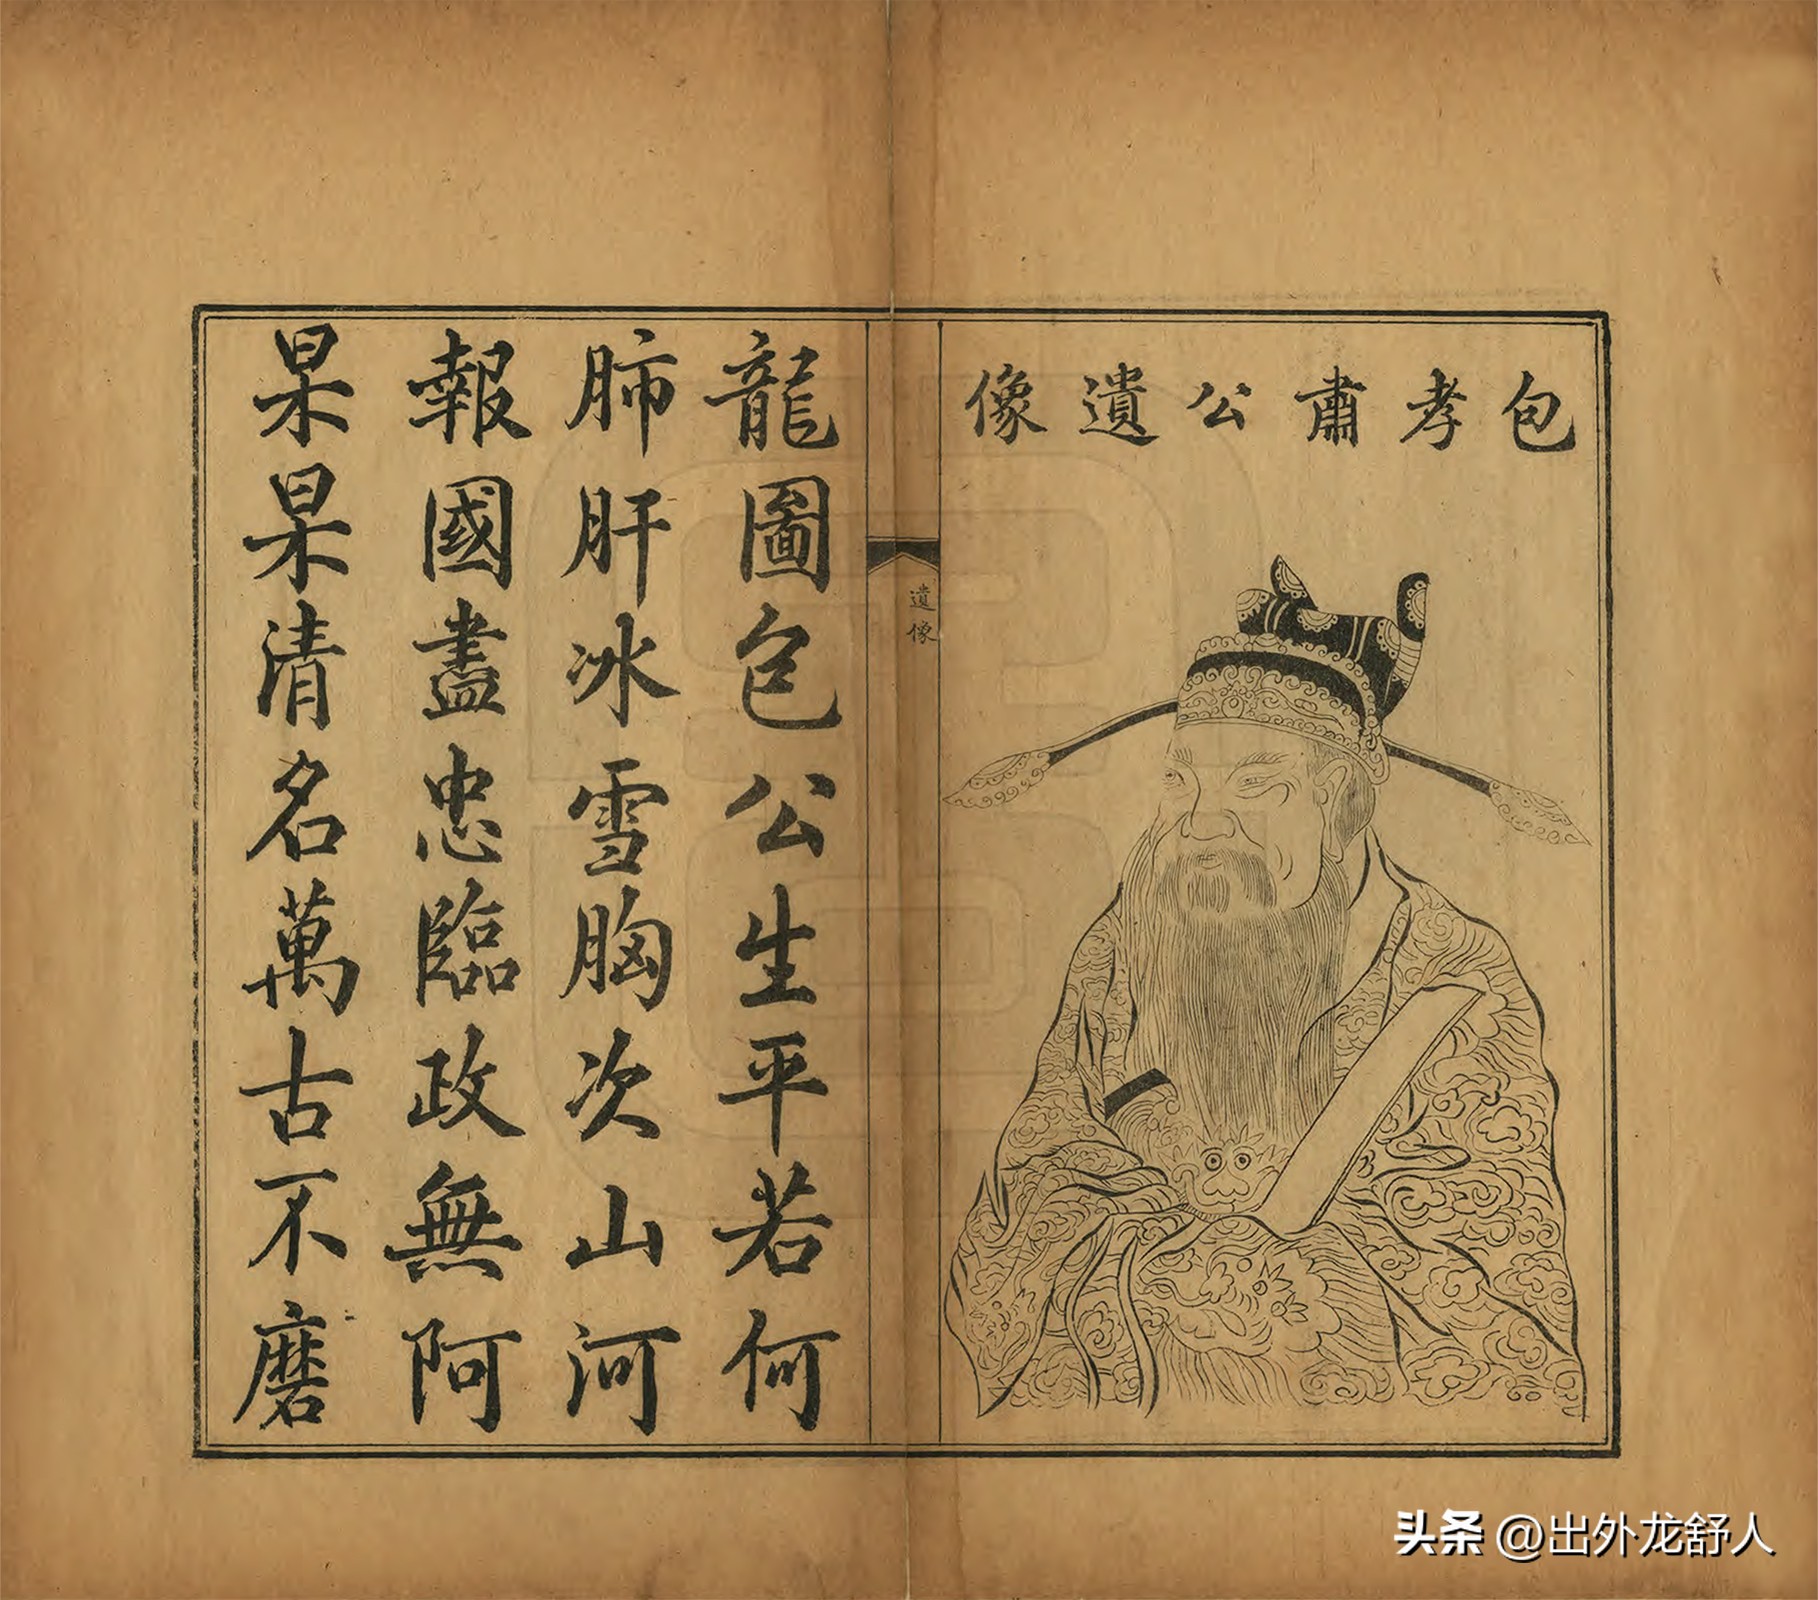 包孝肅公遺像
遺像
龍圖包公生平若何
肺肝冰雪胸次山河
報國盡忠臨政無阿
杲杲清名萬古不磨
头条 @出外龙舒人